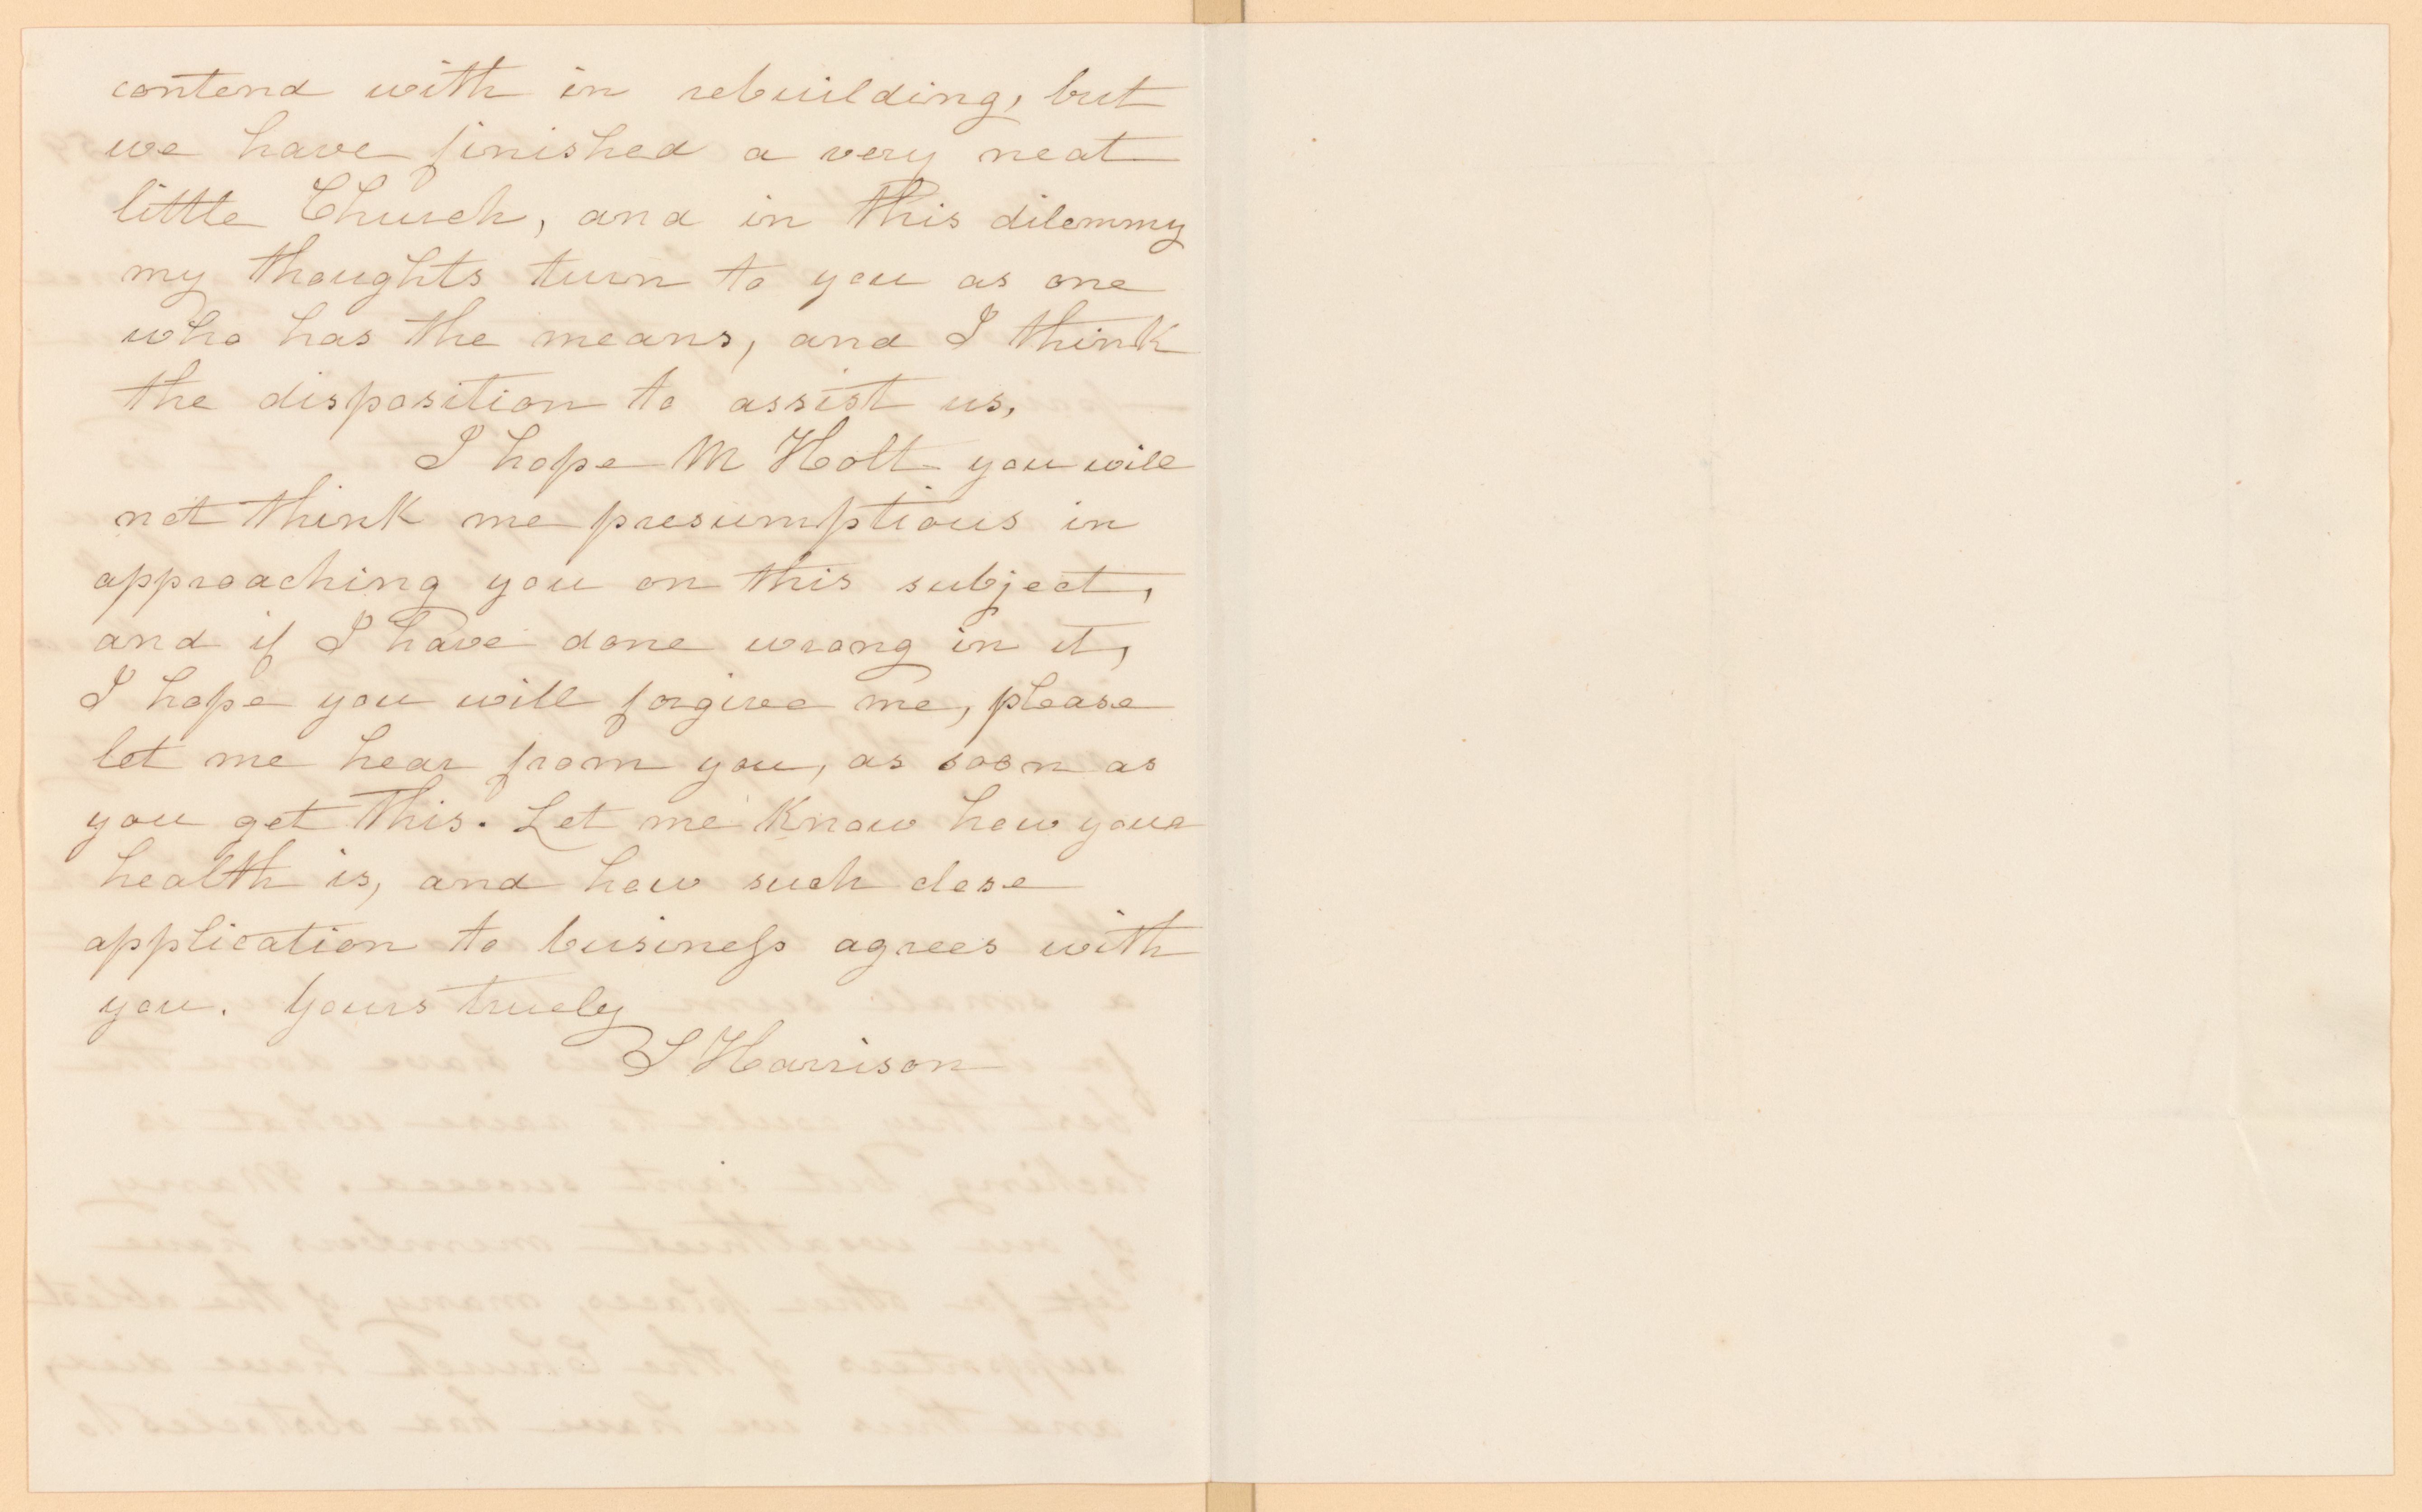 contend with in rebuilding, but
we have finished a very neat
little Church, and in this dilemmy
my thoughts turn to you as one
who has the means, and I think
the disposition to assist us,
I hope M Holt you will
not think me presumptious in
approaching you on this subject,
and if I have done wrong in it,
I hope you will forgive me, please
let me hear from you, as soon as
you get this. Let me know how your
health is, and how such close
application to business agrees with
you. Yours truely
S Harrison